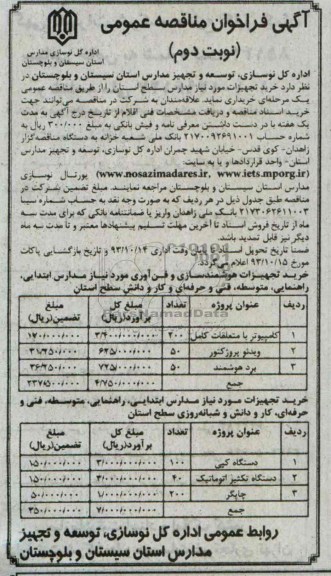 آگهی فراخوان مناقصه عمومی
(نوبت دوم)
اداره کل نوسازی مدارس
استان سیستان و بلوچستان
اداره کل نوسازی، توسعه و تجهیز مدارس استان سیستان و بلوچستان در
نظر دارد خرید تجهیزات مورد نیاز مدارس سطح استان را از طریق مناقصه عمومی
یک مرحله‌ای خریداری نماید. علاقه‌مندان به شرکت در مناقصه می توانند جهت
خرید اسناد مناقصه و دریافت مشخصات فنی اقلام از تاریخ درج آگهی به مدت
یک هفته با در دست داشتن معرفی نامه و فیش بانکی به مبلغ ۳۰۰/۰۰۰ ریال به
شماره حساب ۲۱۷۰۰۹۲۶۹۱۰۰۱ بانک ملی شعبه خزانه به دستگاه مناقصه گزار
زاهدان- کوی قدس- خیابان شهید چمران اداره کل نوسازی، توسعه و تجهیز مدارس
استان- واحد قراردادها و یا به سایت:
(www.nosazimadares.ir, www.iets.mporg.ir) پورتال نوسازی
مدارس استان سیستان و بلوچستان مراجعه نمایند. مبلغ تضمین شرکت در
مناقصه طبق جدول ذیل در هر ردیف که به صورت وجه نقد به حساب شماره سیبا
۲۱۷۳۰۶۲۶۱۱۰۰۳ بانک ملی زاهدان واریز یا ضمانتنامه بانکی که برای مدت سه
ماه از تاریخ فروش اسناد تا آخرین مهلت تسلیم پیشنهادها معتبر و تا مدت سه ماه
دیگر نیز قابل تمدید باشد.
ضمنا تاریخ تحویل اسناد پایان وقت اداری ۹۳/۱۰/۱۴ و تاریخ بازگشایی پاکات
مورخ ۹۳/۱۰/۱۵ اعلام می گردد.
خرید تجهیزات هوشمندسازی و فن‌آوری مورد نیاز مدارس ابتدایی،
راهنمایی، متوسطه، فنی و حرفه‌ای و کار و دانش سطح استان
ردیف عنوان پروژه تعداد مبلغ کل برآورد(ریال) مبلغ تضمین(ریال)
۱ کامپیوتر با متعلقات کامل ۴۰۰ ۳/۴۰۰/۰۰۰/۰۰۰ ۱۷۰/۰۰۰/۰۰۰
۲ ویدئو پروژکتور ۵۰ ۶۲۵/۰۰۰/۰۰۰ ۳۱/۲۵۰/۰۰۰
۳ برد هوشمند ۵۰ ۷۲۵/۰۰۰/۰۰۰ ۳۶/۲۵۰/۰۰۰
جمع ۴/۷۵۰/۰۰۰/۰۰۰
خرید تجهیزات مورد نیاز مدارس ابتدایی، راهنمایی، متوسطه، فنی و
حرفه‌ای، کار و دانش و شبانه‌روزی سطح استان
ردیف عنوان پروژه تعداد مبلغ کل برآورد(ریال) مبلغ تضمین(ریال)
۱ دستگاه کپی ۱۰۰ ۳/۰۰۰/۰۰۰/۰۰۰ ۱۵۰/۰۰۰/۰۰۰
۲ دستگاه تکثیر اتوماتیک ۴۰ ۳/۰۰۰/۰۰۰/۰۰۰ ۱۵۰/۰۰۰/۰۰۰
۳ چاپگر ۲۰۰ ۱/۰۰۰/۰۰۰/۰۰۰ ۵۰/۰۰۰/۰۰۰
جمع ۷/۰۰۰/۰۰۰/۰۰۰ ۳۵۰/۰۰۰/۰۰۰
روابط عمومی اداره کل نوسازی، توسعه و تجهیز
مدارس استان سیستان و بلوچستان